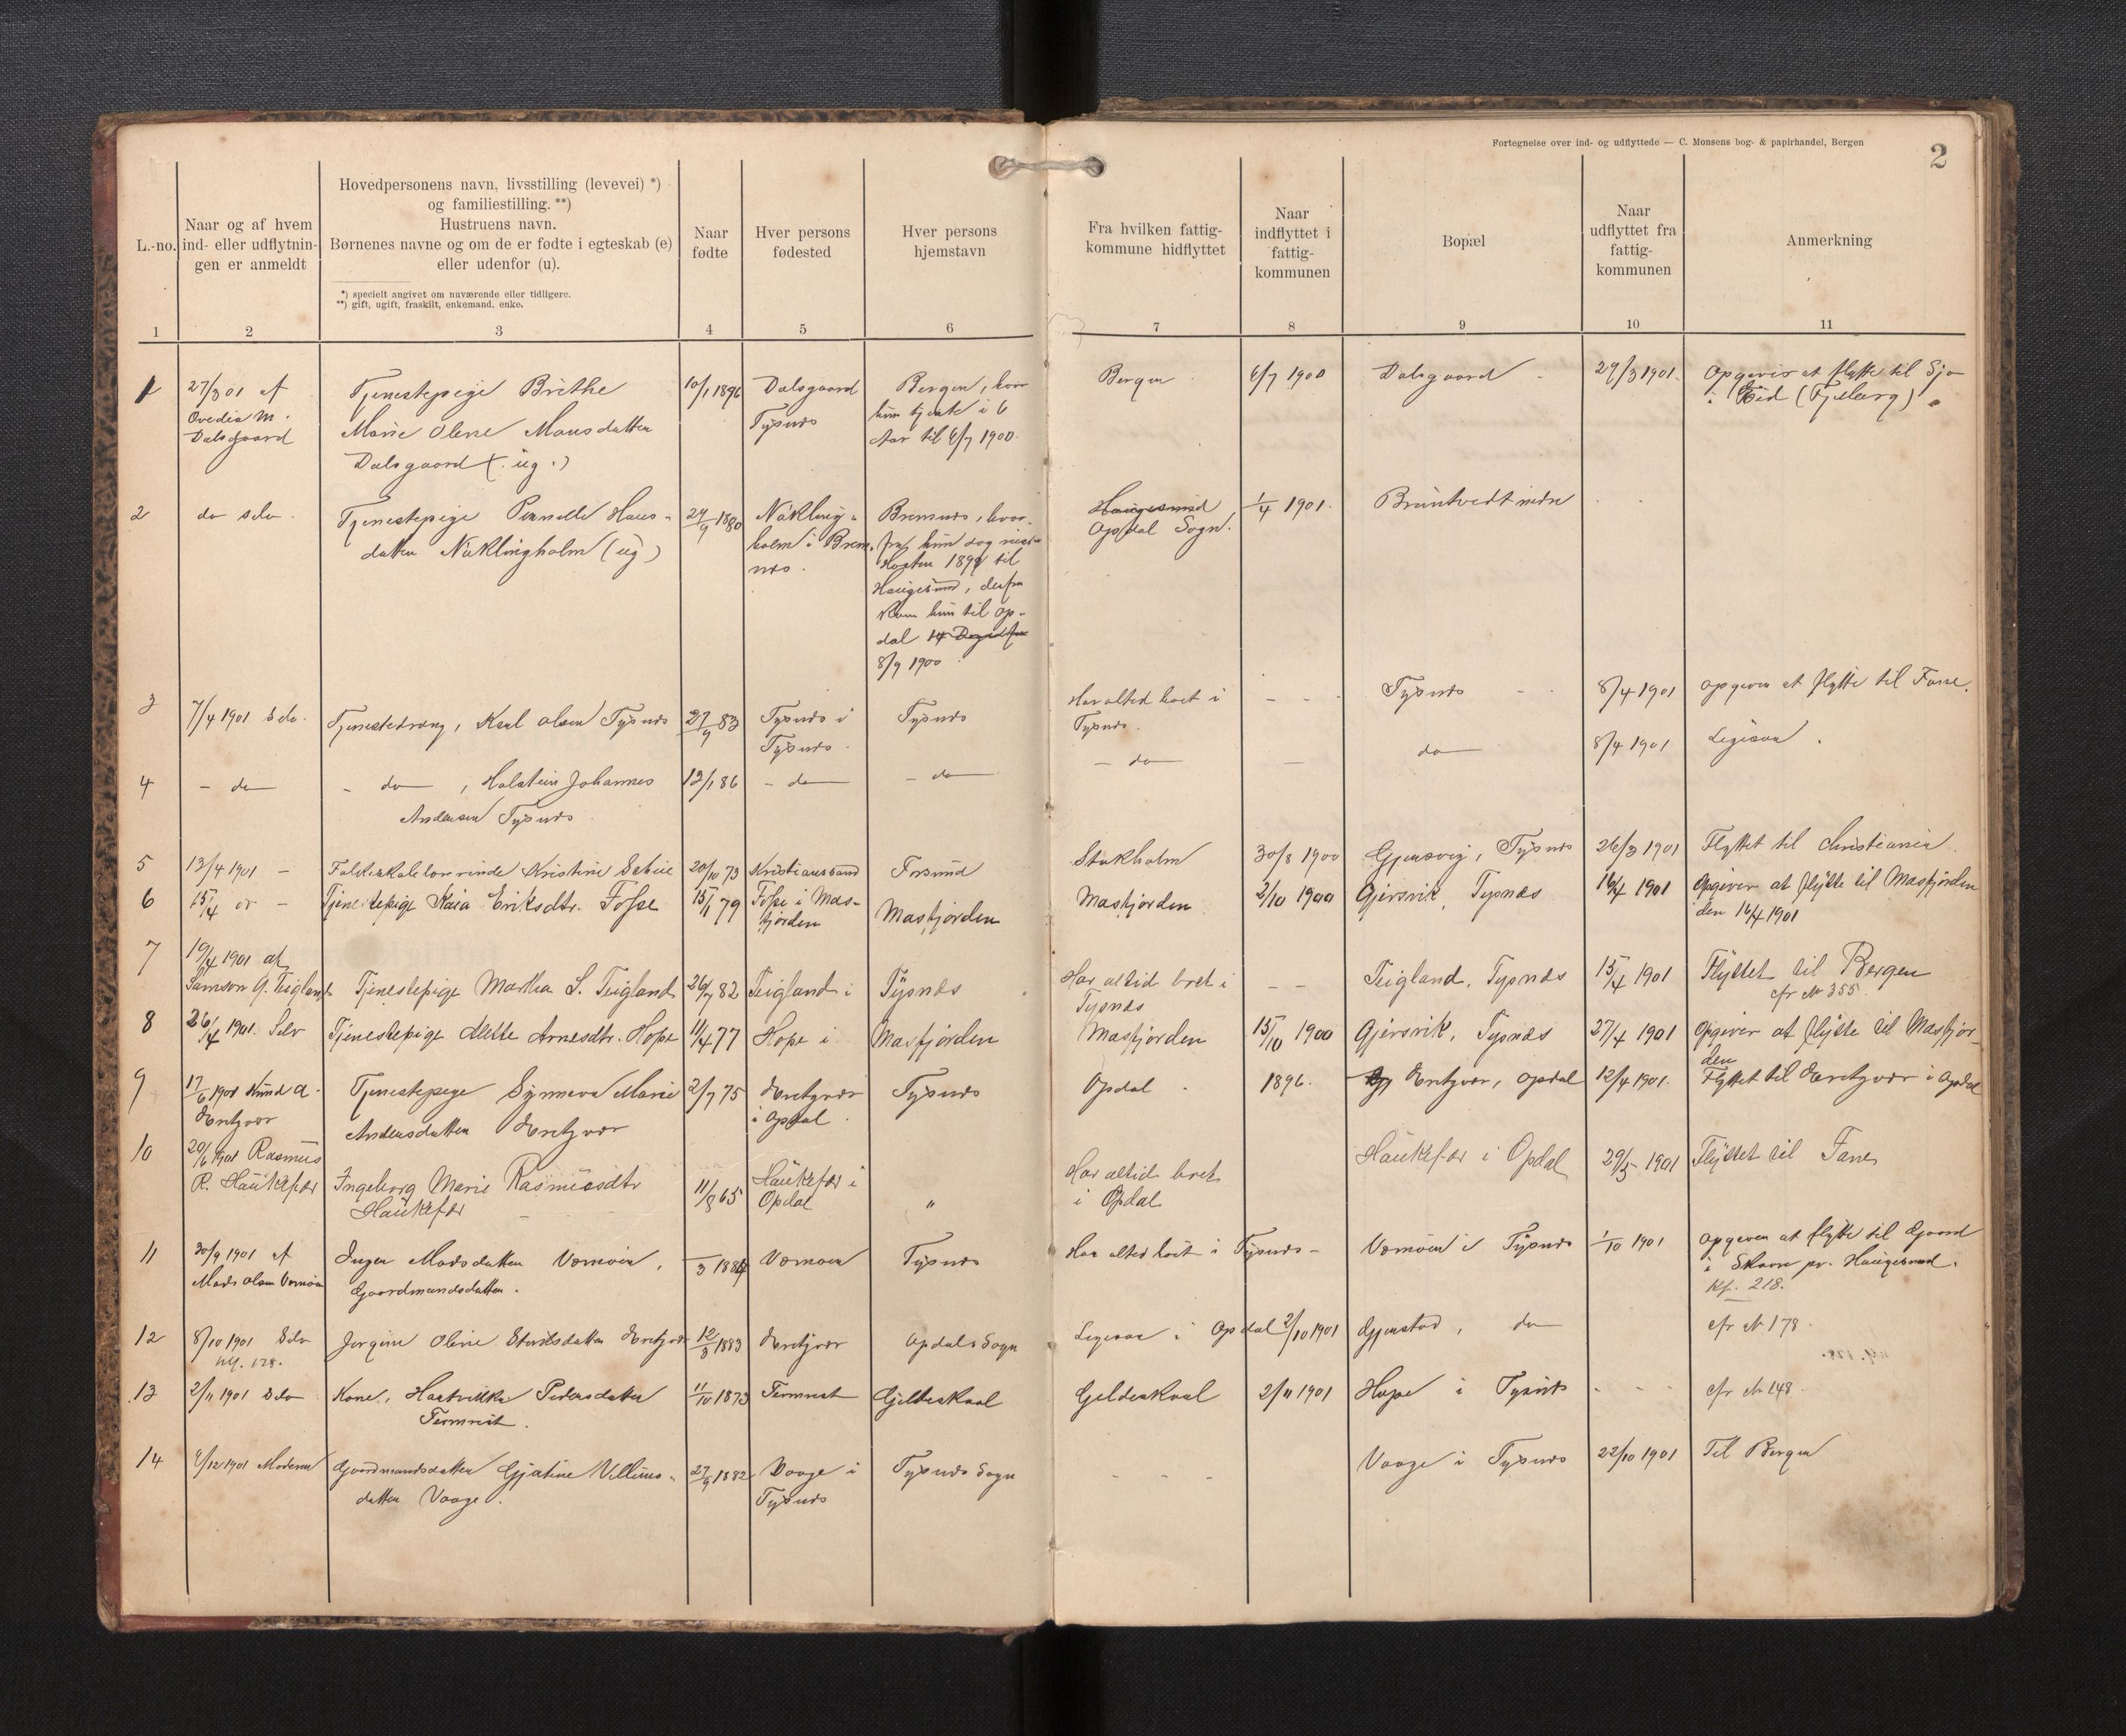 Fortegnelse over ind- og udflyttede — C. Monsens bog- & papirhandel, Bergen
2
L.-no.
Naar og af hvem
ind- eller udflytnin-
gen er anmeldt
Hovedpersonens navn, livsstilling (levevei) *)
og familiestilling. **)
Hustruens navn.
Børnenes navne og om de er fødte i egteskab (e)
eller udenfor (u).
*) specielt angivet om nuværende eller tidligere.
**) gift, ugift, fraskilt, enkemand, enke.
Naar
fødte
Hver persons
fødested
Hver persons
hjemstavn
Fra hvilken fattig-
kommune hidflyttet
Naar
indflyttet i
fattig-
kommunen
Bopæl
Naar
udflyttet fra
fattig-
kommunen
Anmerkning
1 2 3 4 5 6 7 8 9 10 11
1
27/3 01 af
Ovedia M.
Dalsgaard
Tjenestepige Brithe
Marie Oline Monsdatter
Dalsgaard (ug.)
10/1 1896
Dalsgaard
Tysnes
Bergen, hvor
hun tjente i 6
Aar til 6/7 1900.
Bergen
6/7 1900
Dalsgaard
29/3 1901.
Opgives at flytte til
i Eid (Fjelberg)
2
do selv.
Tjenestepige Pernelle Hans-
datter Nøklingholm (ug)
24/9 1880
Nøkling-
holm i Brem-
nes.
Bremnes, hvor-
fra hun dog
Høsten 1899 til
Haugesund, derfra
kom hun til Op-
dal
8/9 1900
Haugesund
Opdal Sogn.
1/4 1901.
Bruntvedt nedre
3
7/4 1901 Selv.
Tjenestedreng, Karl Olsen Tysnes
27/9 83
Tysnes i
Tysnes.
Tysnes
Har altid boet i
Tysnes.
- - -
Tysnes
8/4 1901
opgiver at flytte til Fane.
4
- do
- do , Halstein Johannes
Andersen Tysnes
12/1 86
- do
- do
- do
-
do
8/4 1901
Ligesaa.
5
13/4 1901 -
Folkeskolelærerinde Kristine
20/10 73
Kristianssund
Stokholm
30/8 1900
Gjersvig, Tysnes
26/3 1901
Flyttet til Christiania.
6
15/4 do -
Tjenestepige Kaia Eriksdtr. Fosse
15/1 79
Fosse i Mas-
fjorden
Masfjorden
Masfjorden
2/10 1900
Gjersvik, Tysnæs
16/4 1901
Opgiver at flytte til Masfjorden
den 16/4 1901
7
19/4 1901 af
Samson G. Teigland
Tjenestepige Martha S. Teigland
26/7 82
Teigland i
Tysnæs
Har altid boet i
Tysnæs
- -
Teigland, Tysnæs
15/4 1901
Flyttet til Bergen
cfr No 355.
8
26/4 1901. Selv
Tjenestepige Alette Arnesdtr. Hope
11/4 77
Hope i
Masfjorden
Masfjorden
15/10 1900
Gjersvik, Tysnæs
27/4 1901
Opgiver at flytte til Masfjor-
den
9
17/6 1901 Knud A.
Tjenestepige Synneva Marie
Andersdatter
2/7 75
i Opdal.
Tysnes
Opdal
1896.
Opdal
12/4 1901.
Flyttet til i Opdal
10
20/6 1901 Rasmus
R. Haukefær
Ingeborg Marie Rasmusdtr
Haukefær
11/8 65
Haukefær i
Opdal
"
Har altid boet
i Opdal
Haukefær i Opdal
29/5 1901
Flyttet til Fane
11
30/9 1901 af
Mads Olsen Vernøen
Inger Madsdatter Vernøen,
Gaardmandsdatter.
/3 1884
Vernøen
Tysnes
Har altid boet i Tysnes -
Vernøen i Tysnes
1/10 1901
opgiver at flytte til Gaard
i Skaare pr. Haugesund.
Kf. 218.
12
8/10 1901 Selv
Jørgine Oline
12/3 1883
Opdals Sogn
Ligesaa i Opdal
2/10 1901
Gjerstad, do
cfr No 178.
13
2/11 1901 Selv
Kone, Hartvikka Pedersdatter
Termrest.
11/10 1873
Termrest
Gildeskaal
Gildeskaal
2/11 1901
Hope i Tysnes
- - -
cfr No 148.
14
6/12 1901 Moderen
Gaardmandsdatter Gjatine Villums-
datter Vaage.
27/9 1882
Vaage i
Tysnes
Tysnes Sogn
- - -
Vaage i Tysnes
22/10 1901
Til Bergen